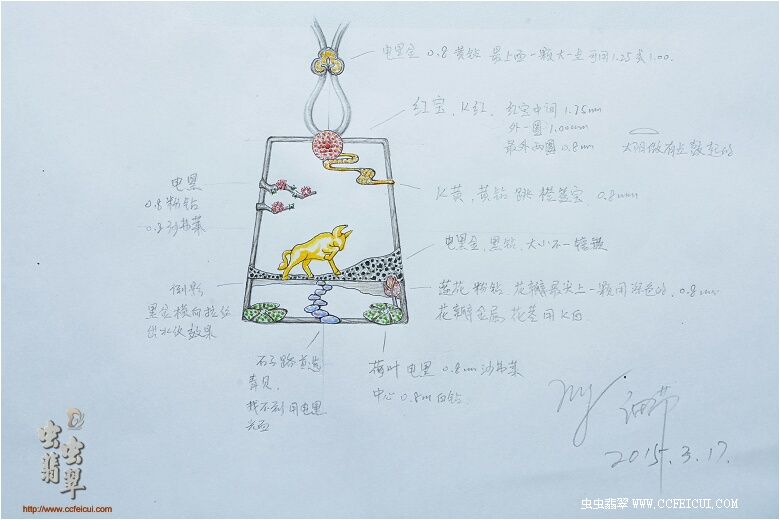 电黑金 0.8 黄钻 最上面一颗大一点 可用1.25或1.00.
红宝、K红. 红宝中间 1.75mm
外一圈 1.00mm
最外两圈 0.8mm 太阳做有点鼓起的
电黑
0.8 粉钻
0.8 沙弗莱
K黄, 黄钻 跳 橙蓝宝 0.8mm
电黑金, 黑钻, 大小不一镶嵌
倒影
黑金横向拉丝
出水纹效果
莲花 粉钻 花瓣最尖上一颗用深色的. 0.8mm
花瓣金属, 花茎用K白
石子路首选
青贝.
找不到用电黑
光面
荷叶 电黑 0.8mm 沙弗莱
中心 0.8mm 白钻
2015.3.17.
虫虫翡翠
http://www.ccfeicui.com
虫虫翡翠 WWW.CCFEICUI.COM